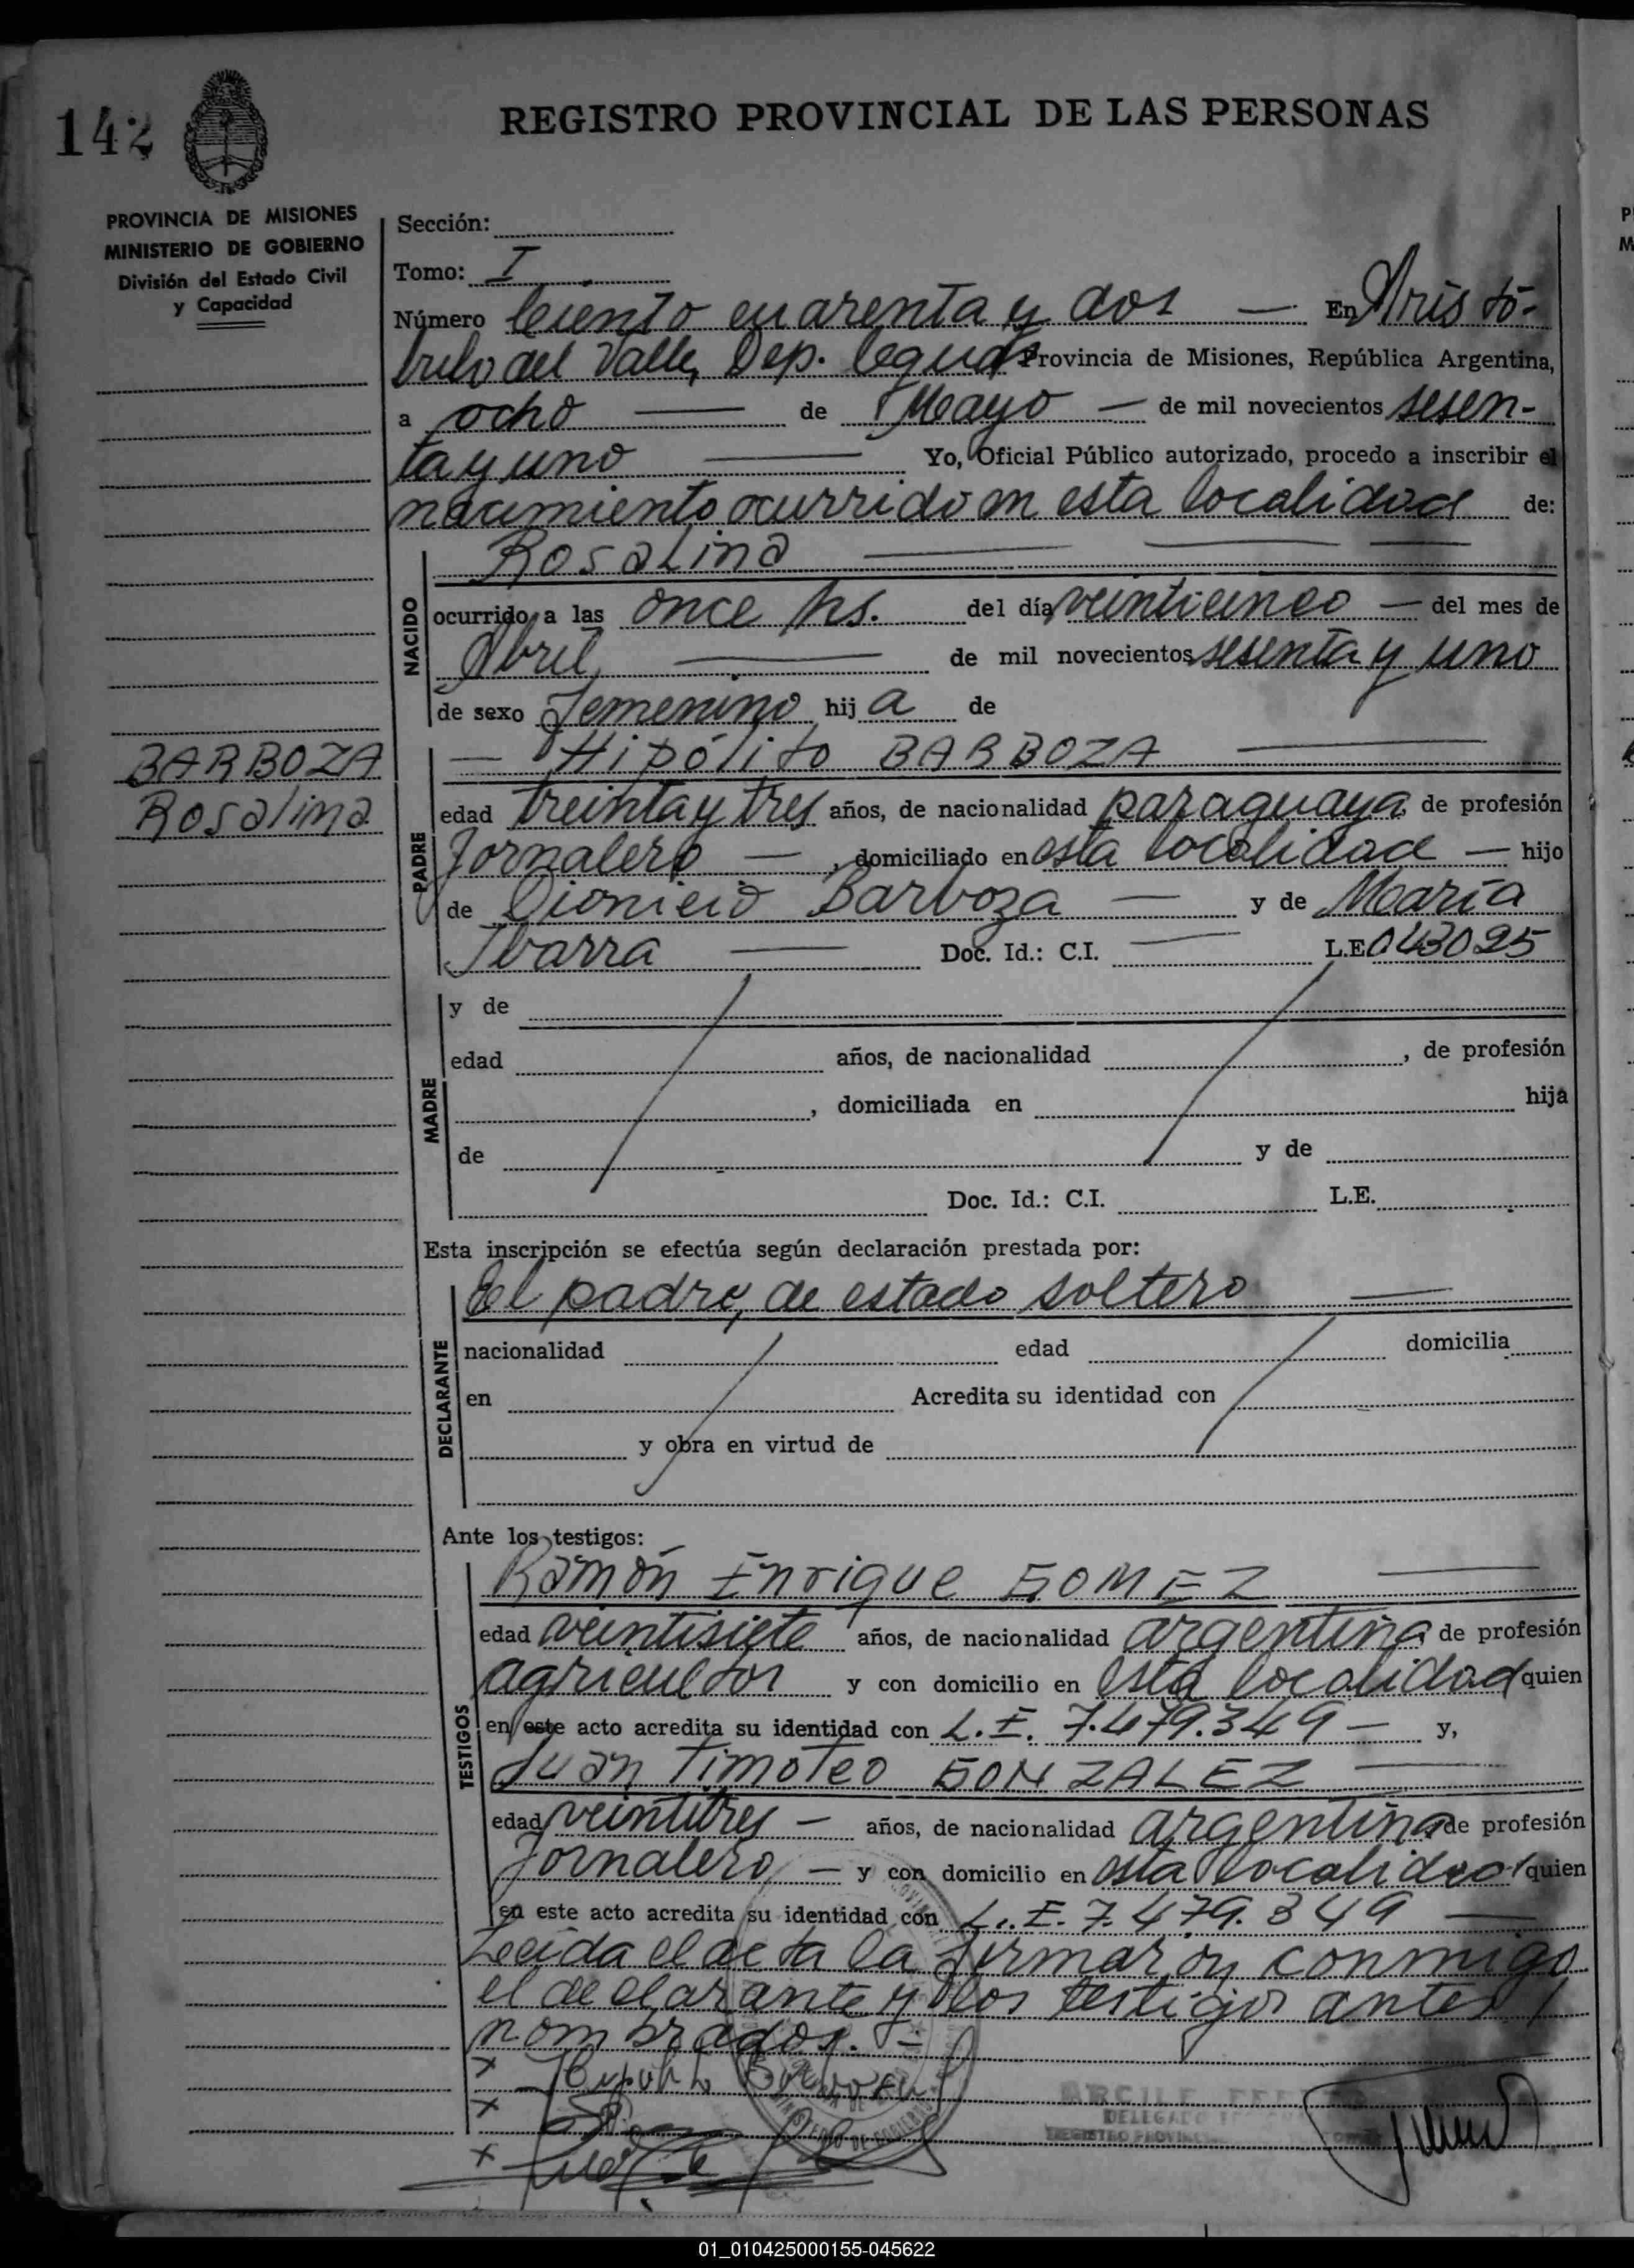 142
REGISTRO PROVINCIAL DE LAS PERSONAS
PROVINCIA DE MISIONES
MINISTERIO DE GOBIERNO
División del Estado Civil
y Capacidad
Sección:
Tomo: I
Número Ciento cuarenta y dos — En Aristó-
bulo del Valle, Dep. Cgüas Provincia de Misiones, República Argentina,
a ocho — de Mayo — de mil novecientos sesen-
ta y uno — Yo, Oficial Público autorizado, procedo a inscribir el
nacimiento ocurrido en esta localidad de:
NACIDO
Rosalina — — —
ocurrido a las once hs. del día veinticinco — del mes de
Abril — de mil novecientos sesenta y uno
de sexo femenino hija de
BARBOZA
Rosalina
PADRE
— Hipólito BARBOZA —
edad treinta y tres años, de nacionalidad paraguaya de profesión
Jornalero — , domiciliado en esta localidad — hijo
de Dionicio Barboza — y de María
Ibarra — Doc. Id.: C.I. — L.E. 043025
MADRE
y de
edad años, de nacionalidad , de profesión
, domiciliada en hija
de y de
Doc. Id.: C.I. L.E.
Esta inscripción se efectúa según declaración prestada por:
DECLARANTE
El padre, de estado soltero —
nacionalidad edad domicilia
en Acredita su identidad con
y obra en virtud de
Ante los testigos:
TESTIGOS
Ramón Enrique GOMEZ —
edad veintisiete años, de nacionalidad argentina de profesión
agricultor y con domicilio en esta localidad quien
en este acto acredita su identidad con L.E. 7.479.349 — y,
Juan Timoteo GONZALEZ —
edad veintitres — años, de nacionalidad argentina de profesión
Jornalero — y con domicilio en esta localidad quien
en este acto acredita su identidad con L.E. 7.479.349 —
Leida el acta la firmaron conmigo
el declarante y los testigos antes
nombrados. —
x Hipolito Barboza
x
x
DELEGADO
REGISTRO PROVINC
01_010425000155-045622